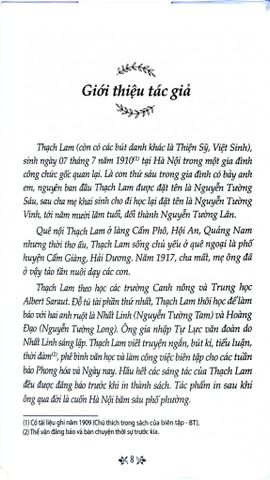 Giới thiệu tác giả
Thạch Lam (còn có các bút danh khác là Thiện Sỹ, Việt Sinh),
sinh ngày 07 tháng 7 năm 1910(1) tại Hà Nội trong một gia đình
công chức gốc quan lại. Là con thứ sáu trong gia đình có bảy anh
em, nguyên ban đầu Thạch Lam được đặt tên là Nguyễn Tường
Sáu, sau cha mẹ khai sinh cho đi học lại đặt tên là Nguyễn Tường
Vinh, tới năm mười lăm tuổi, đổi thành Nguyễn Tường Lân.
Quê nội Thạch Lam ở làng Cẩm Phô, Hội An, Quảng Nam
nhưng thời thơ ấu, Thạch Lam sống chủ yếu ở quê ngoại là phố
huyện Cẩm Giàng, Hải Dương. Năm 1917, cha mất, mẹ ông đã
ở vậy tảo tần nuôi dạy các con.
Thạch Lam theo học các trường Canh nông và Trung học
Albert Saraut. Đỗ tú tài phần thứ nhất, Thạch Lam thôi học để làm
báo với hai anh ruột là Nhất Linh (Nguyễn Tường Tam) và Hoàng
Đạo (Nguyễn Tường Long). Ông gia nhập Tự Lực văn đoàn do
Nhất Linh sáng lập. Thạch Lam viết truyện ngắn, bút kí, tiểu luận,
thời đàm(2), phê bình văn học và làm công việc biên tập cho các tuần
báo Phong hóa và Ngày nay. Hầu hết các sáng tác của Thạch Lam
đều được đăng báo trước khi in thành sách. Tác phẩm in sau khi
ông qua đời là cuốn Hà Nội băm sáu phố phường.
(1) Có tài liệu ghi năm 1909 (Chú thích trong sách của biên tập - BT).
(2) Thể văn đăng báo và bàn chuyện thời sự trước kia.
8